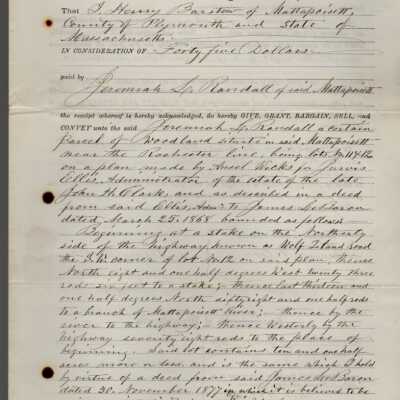 That I, Henry Barstow of Mattapoisett,
County of Plymouth and State of
Massachusetts
IN CONSIDERATION OF Forty five Dollars
paid by
Jeremiah L. Randall of said Mattapoisett
the receipt whereof is hereby acknowledged, do hereby GIVE, GRANT, BARGAIN, SELL, and
CONVEY unto the said Jeremiah L. Randall a certain
parcel of Woodland situate in said Mattapoisett
near the Rochester line, being lots No 11 & 12
on a plan made by Ansel Weeks for Jarvis
Ellis, Administrator of the estate of the late
John H. Clark, and as described in a deed
from said Ellis, Admr to James LeBaron
dated March 25, 1868 bounded as follows
Beginning at a stake on the Northerly
side of the highway known as Wolf Island road
the S.W. corner of lot North on said plan, thence
North eight and one half degrees West twenty three
rods six feet to a stake; thence East thirteen and
one half degrees North eight and one half rods
to a branch of Mattapoisett River; thence by the
river to the highway; thence Westerly by the
highway seventy eight rods to the place of
beginning. Said lot contains ten and one half
acres more or less and is the same which I hold
by virtue of a deed from said James LeBaron
dated 30, November 1877 in which it is believed to be